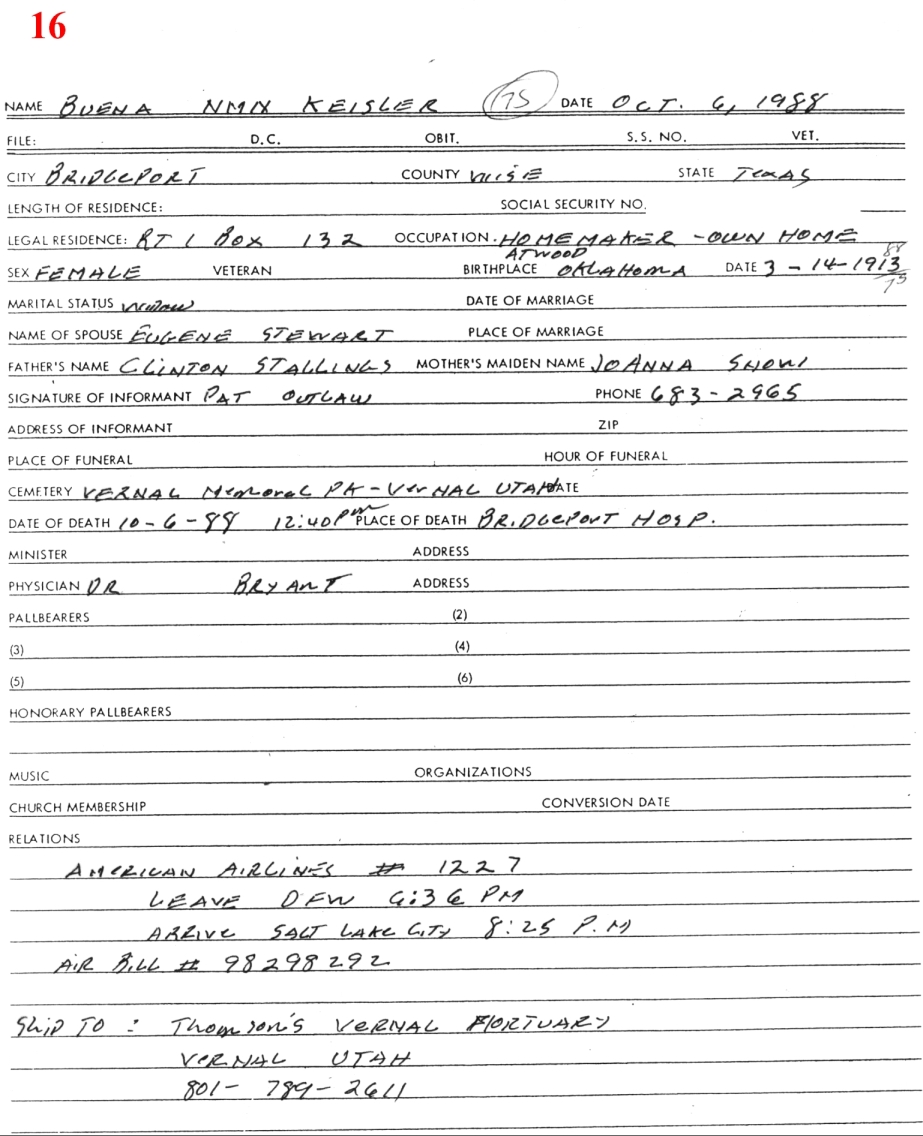 16
NAME BUENA NMN KEISLER 75 DATE OCT. 6, 1988
FILE: D.C. OBIT. S.S. NO. VET.
CITY BRIDGEPORT COUNTY WISE STATE TEXAS
LENGTH OF RESIDENCE: SOCIAL SECURITY NO.
LEGAL RESIDENCE: RT 1 BOX 132 OCCUPATION. HOMEMAKER - OWN HOME
ATWOOD 88
SEX FEMALE VETERAN BIRTHPLACE OKLAHOMA DATE 3-14-1913
75
MARITAL STATUS WIDOW DATE OF MARRIAGE
NAME OF SPOUSE EUGENE STEWART PLACE OF MARRIAGE
FATHER'S NAME CLINTON STALLINGS MOTHER'S MAIDEN NAME JOANNA SNOW
SIGNATURE OF INFORMANT PAT OUTLAW PHONE 683-2965
ADDRESS OF INFORMANT ZIP
PLACE OF FUNERAL HOUR OF FUNERAL
CEMETERY VERNAL Memoral PK - VerNAL UTAH DATE
DATE OF DEATH 10-6-88 12:40 Pm PLACE OF DEATH BRIDGEPORT HOSP.
MINISTER ADDRESS
PHYSICIAN DR BRYANT ADDRESS
PALLBEARERS (2)
(3) (4)
(5) (6)
HONORARY PALLBEARERS
MUSIC ORGANIZATIONS
CHURCH MEMBERSHIP CONVERSION DATE
RELATIONS
AMERICAN AIRLINES # 1227
LEAVE DFW 6:36 PM
ARRIVE SALT LAKE CITY 8:25 P.M
AIR BILL # 98298292
SHIP TO : Thomson's VERNAL MORTUARY
VERNAL UTAH
801-789-2611